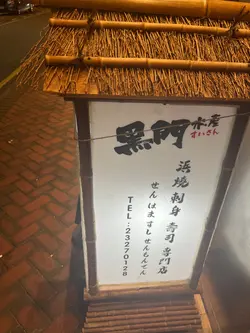 黑阿水産
すいさん
浜燒 刺身 壽司 専門店
せんはますしせんもんてん
TEL:23270128